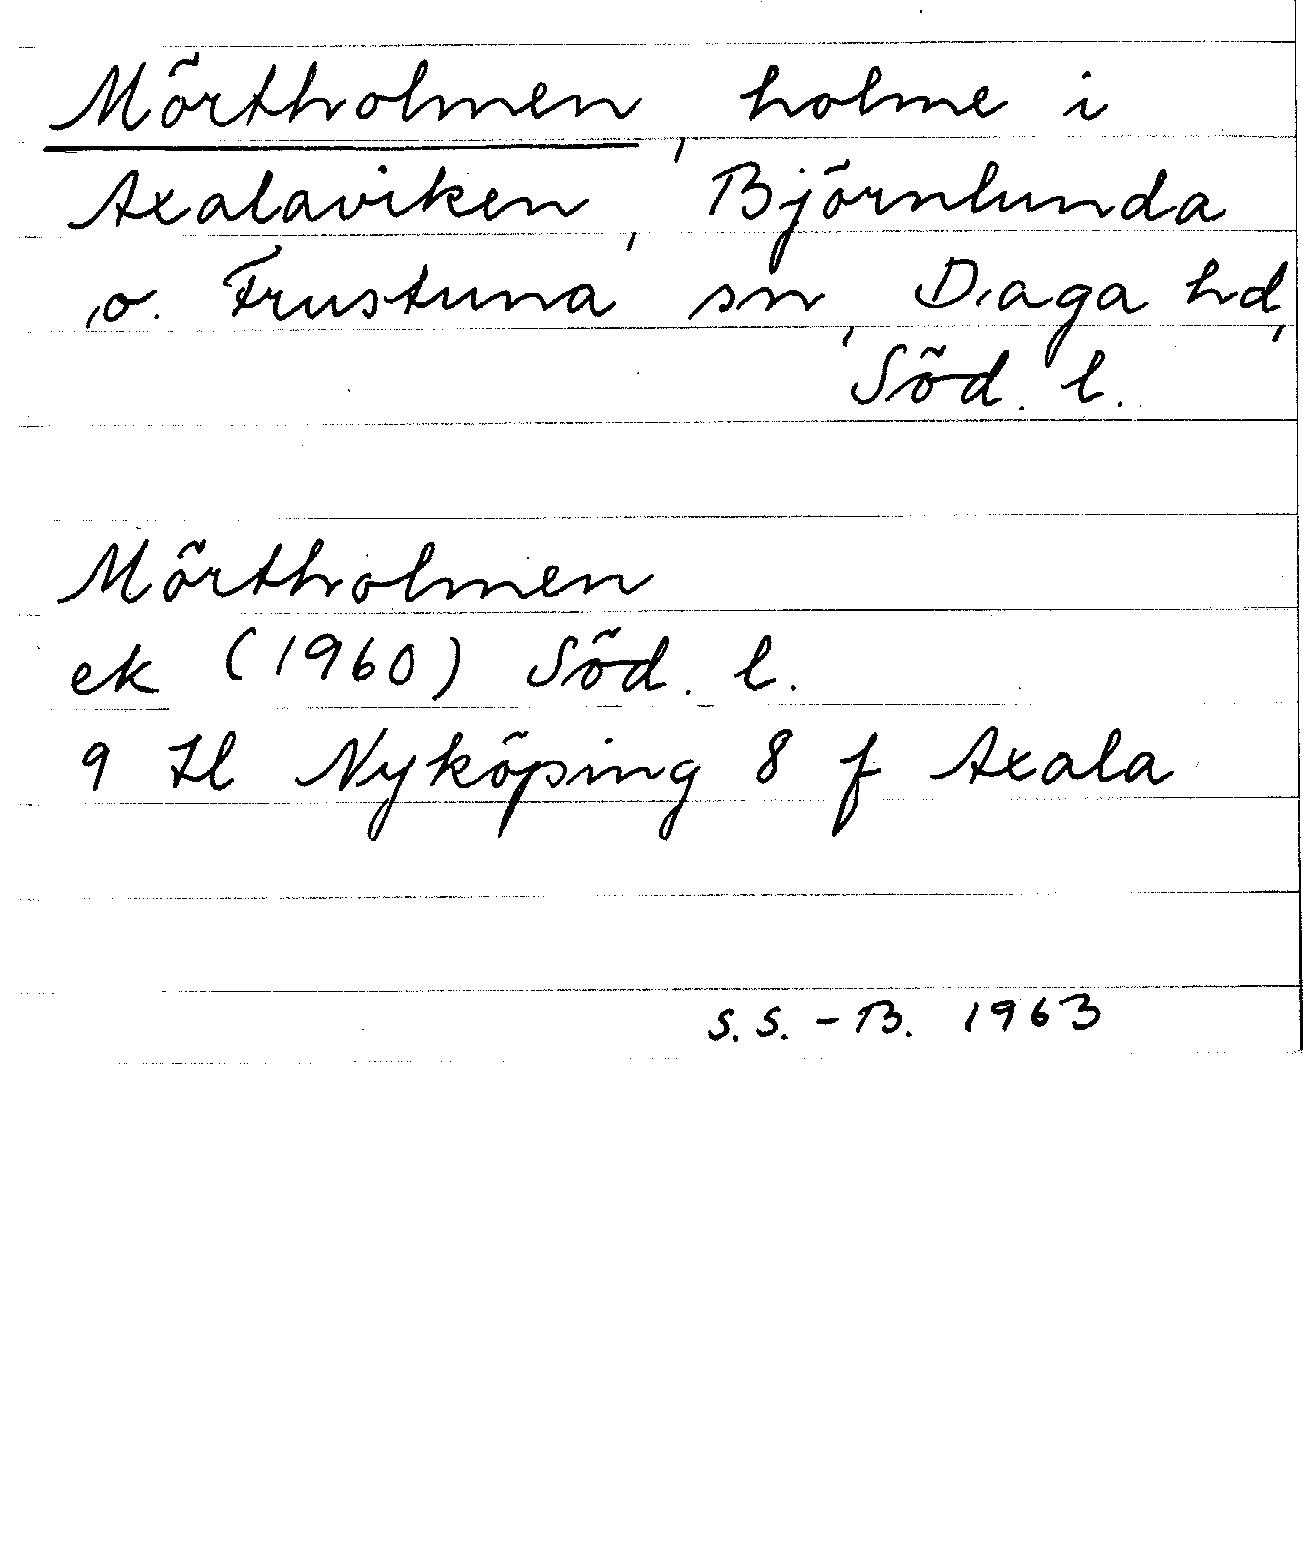 Mörtholmen, holme i
Axalaviken, Björnlunda
o. Frustuna sn, Daga hd,
Söd. l.
Mörtholmen
ek (1960) Söd. l.
9 Hl Nyköping 8 f Axala
S.S.-B. 1963